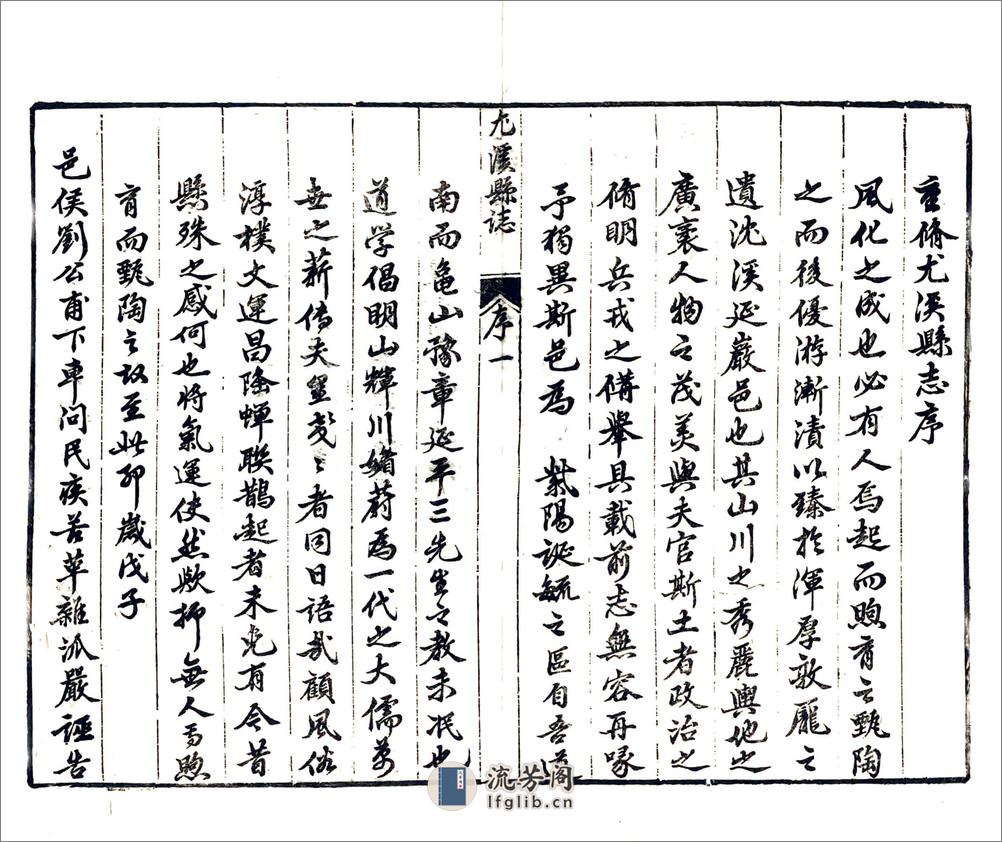 重脩尤溪縣志序
風化之成也必有人焉起而煦育之甄陶
之而後優游漸漬以臻於渾厚敦龐之
遺沈溪延巖邑也其山川之秀麗輿地之
廣袤人物之茂美與夫官斯土者政治之
脩明兵戎之備舉具載前志無容再喙
予獨異斯邑為 紫陽誕毓之區自吾道
尤溪縣誌
序一
南而龜山豫章延平三先生之教未泯也
道学倡明山輝川媚蔚為一代之大儒萬
世之薪傳夫豈戔〻者同日語哉顧風俗
淳樸文運昌隆蟬聯鵲起者未免有今昔
懸殊之感何也將氣運使然歟抑無人焉煦
育而甄陶之故至此耶歲戊子
邑侯劉公甫下車问民疾苦革雜派嚴誣告
流芳阁
lfglib.cn